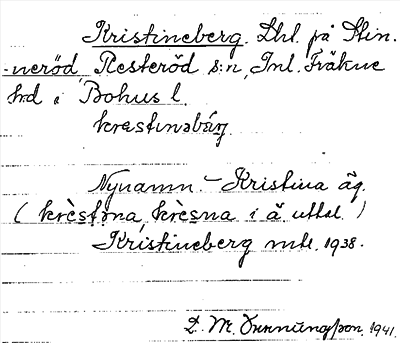 Kristineberg. Lhl. på Stin-
neröd, Resteröd s:n, Inl. Fräkne
hd i Bohus l.
krestinəbárj
Nynamn. - Kristina äg.
(krèstna, krèsna i ä. uttal.)
Kristineberg mtl. 1938.
D. M. 1941.